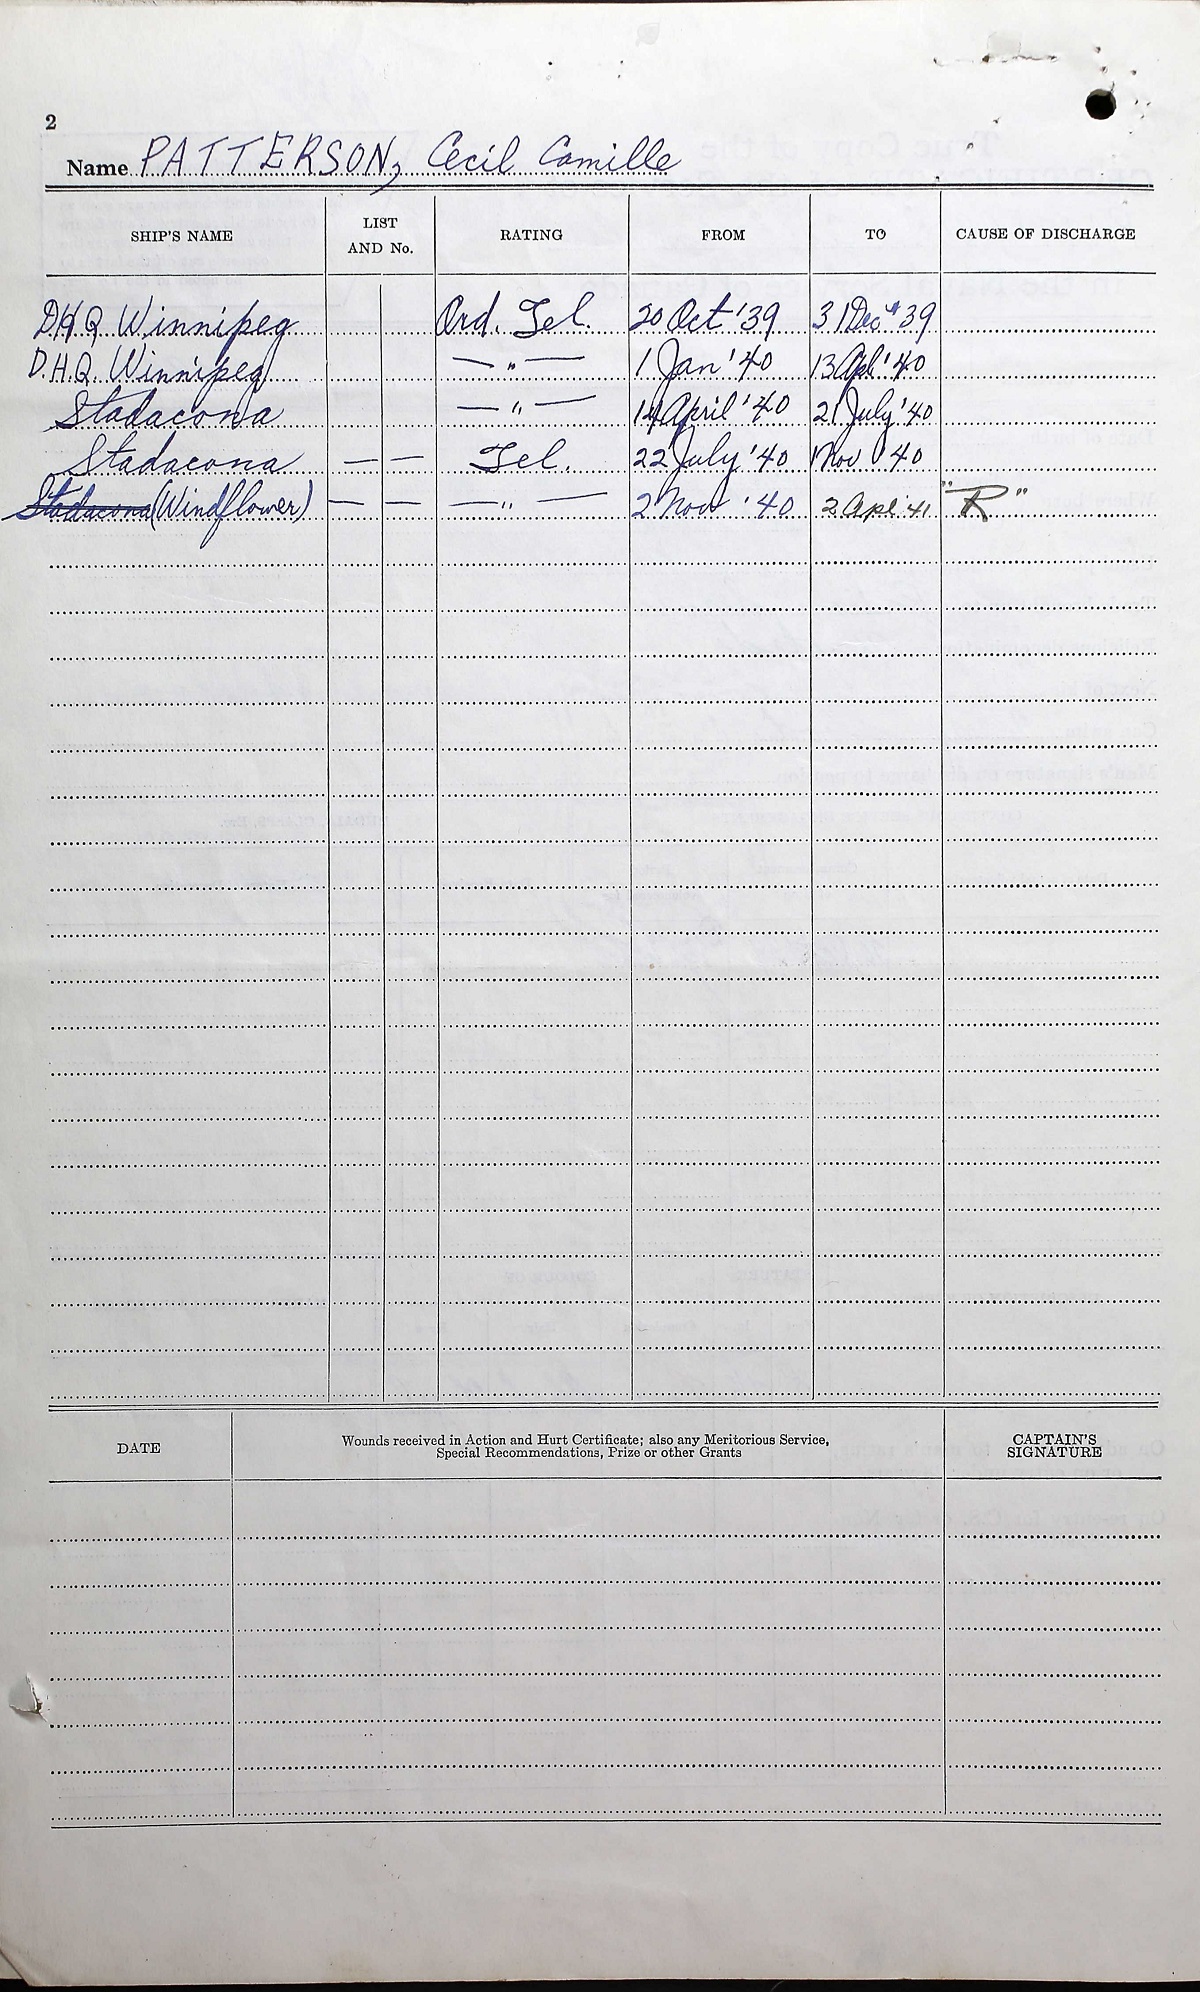 2
Name PATTERSON, Cecil Camille
SHIP'S NAME LIST AND No. RATING FROM TO CAUSE OF DISCHARGE
D.H.Q. Winnipeg Ord. Tel. 20 Oct '39 31 Dec '39
D.H.Q. Winnipeg — " — 1 Jan '40 13 Apl '40
Stadacona — " — 14 April '40 21 July '40
Stadacona — — Tel. 22 July '40 1 Nov '40
Stadacona (Windflower) — — — " — 2 Nov '40 2 Apl '41 "R"
DATE Wounds received in Action and Hurt Certificate; also any Meritorious Service, CAPTAIN'S
Special Recommendations, Prize or other Grants SIGNATURE